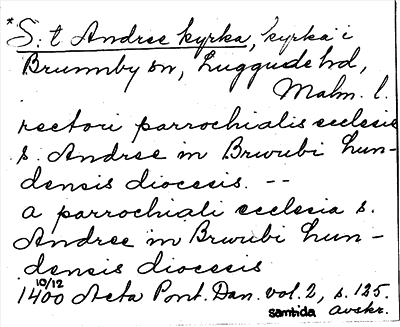 *S:t Andree kyrka, kyrka i
Brunnby sn, Luggude hd,
Malm. l.
rectori parrochialis ecclesie
s. Andree in Brwubi Lun-
densis diocesis. --
a parrochiali ecclesia s.
Andree in Brwubi Lun-
densis diocesis
10/12
1400 Acta Pont. Dan. vol. 2, s. 125.
samtida avskr.